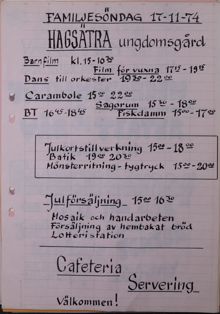 FAMILJESÖNDAG 17-11-74
HAGSÄTRA ungdomsgård
Barnfilm kl. 15-16³⁰
Film för vuxna 17¹⁵-19¹⁵
Dans till orkester 19³⁰-22⁰⁰
Carambole 15⁰⁰ 22⁰⁰
Sagorum 15³⁰-18⁰⁰
BT 16⁴⁵-18⁴⁵ Piskdamm 15⁰⁰-17⁰⁰
Julkortstillverkning 15⁰⁰-18⁰⁰
Batik 19⁰⁰ 20³⁰
Mönsterritning-tygtryck 15⁰⁰-20⁰⁰
Julförsäljning 15⁰⁰ 16³⁰
Mosaik och handarbeten
Försäljning av hembakat bröd
Lotteristation
Cafeteria
Servering
Välkommen!